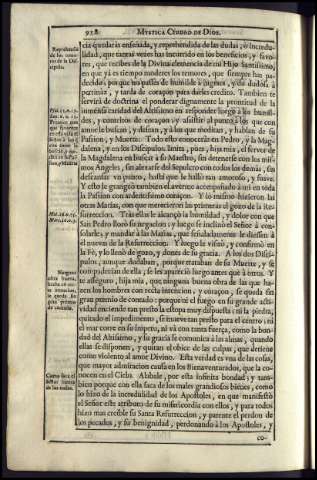 928 MYSTICA CIUDAD DE DIOS.
cia quedaràs enseñada, y reprehendida de las dudas, ò incredu-
lidad, que tantas vezes has incurrido en los beneficios, y favo-
res, que recibes de la Divina clemencia de mi Hijo Santissimo,
en que yà es tiempo moderes los temores, que siempre has pa-
decido, porque no passes de humilde à ingrata, y de dudosa à
pertinàz, y tarda de coraçon para darles credito. Tambien te
servirà de doctrina el ponderar dignamente la promptitud de la
inmensa caridad del Altissimo en responder luego à los humil-
des, y contritos de coraçon; y assistir al punto à los que con
amor le buscan, y à los que meditan, y hablan de su
Passion, y Muerte. Todo esto conoceràs en Pedro, y la Mag-
dalena, y en los Discipulos. Imita, pues, hija mia, el fervor de
la Magdalena en buscar à su Maestro, sin detenerse con los mis-
mos Angeles, sin alexarse del Sepulcro con todos los demàs, sin
descansar vn punto, hasta que le hallò tan amoroso, y suave.
Y esto le grangeò tambien el averme acompañado à mi en toda
la Passion con ardentissimo coraçon. Y lo mismo hizieron las
otras Marias, con que merecieron las primeras el gozo de la Re-
surreccion. Tras ellas le alcançò la humildad, y dolor con que
San Pedro llorò su negacion; y luego se inclinò el Señor à con-
solarle, y mandar à las Marias, que señaladamente le diessen à
èl nueva de la Resurreccion. Y luego le visitò, y confirmò en
la Fè, y lo llenò de gozo, y dones de su gracia. A los dos Disci-
pulos, aunque dudaban, porque trataban de su Muerte, y se
compadecian de ella, se les apareciò luego antes que à otros. Y
te asseguro, hija mia, que ninguna buena obra de las que ha-
zen los hombres con recta intencion, y coraçon, se queda sin
gran premio de contado: porque ni el fuego en su grande acti-
vidad enciende tan presto la estopa muy dispuesta; ni la piedra,
quitado el impedimento, se mueve tan presto para el centro; ni
el mar corre en su impetu, ni và con tanta fuerça, como la bon-
dad del Altissimo, y su gracia se comunica à las almas, quando
ellas se disponen, y quitan el obice de las culpas, que detiene
como violento al amor Divino. Esta verdad es vna de las cosas,
que mayor admiracion causa en los Bienaventurados, que la co-
nocen en el Cielo. Alabale, por esta infinita bondad; y tam-
bien porque con ella saca de los males grandiosos bienes, como
lo hizo de la incredulidad de los Apostoles, en que manifestò
el Señor este atributo de su misericordia con ellos, y para todos
hizo mas creible su Santa Resurreccion, y patente el perdon de
los pecados, y su benignidad, perdonando à los Apostoles, y
co-